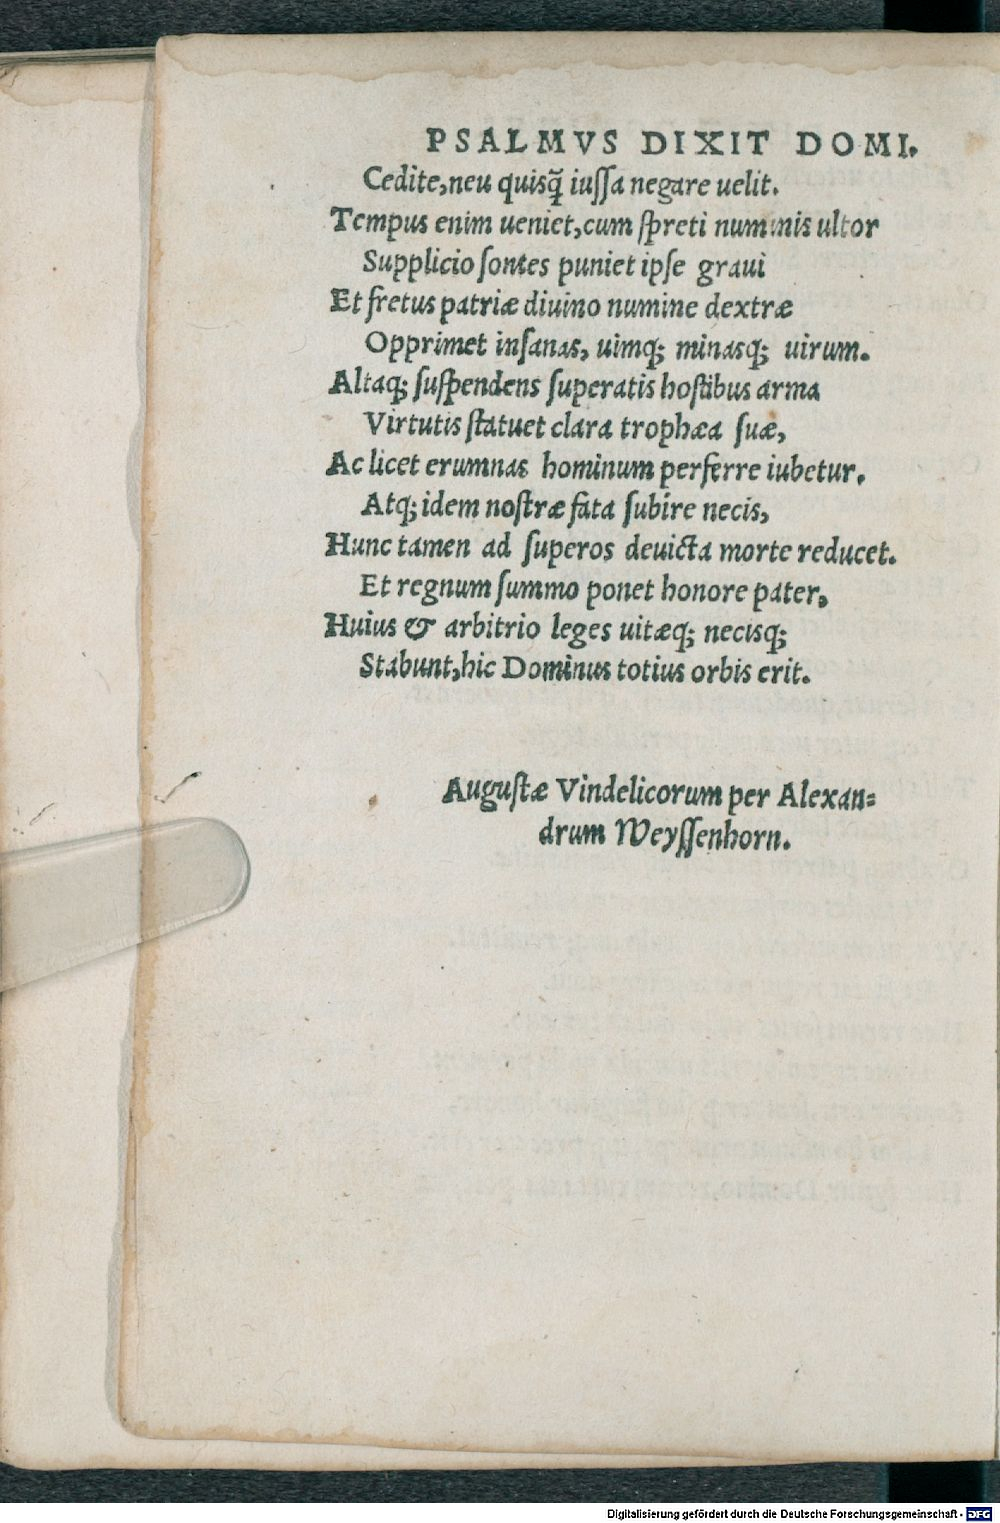 PSALMVS DIXIT DOMI.
Cedite, neu quisq̃ iuſſa negare uelit.
Tempus enim ueniet, cum ſpreti numinis ultor
Supplicio ſontes puniet ipſe graui
Et fretus patriæ diuino numine dextræ
Opprimet inſanas, uimq; minasq; uirum.
Altaq; ſuſpendens ſuperatis hoſtibus arma
Virtutis ſtatuet clara trophæa ſuæ,
Ac licet erumnas hominum perferre iubetur.
Atq; idem noſtræ fata ſubire necis,
Hunc tamen ad ſuperos deuicta morte reducet.
Et regnum ſummo ponet honore pater,
Huius & arbitrio leges uitæq; necisq;
Stabunt, hic Dominus totius orbis erit.
Auguſtæ Vindelicorum per Alexan=
drum Weyſſenhorn.
Digitalisierung gefördert durch die Deutsche Forschungsgemeinschaft - DFG